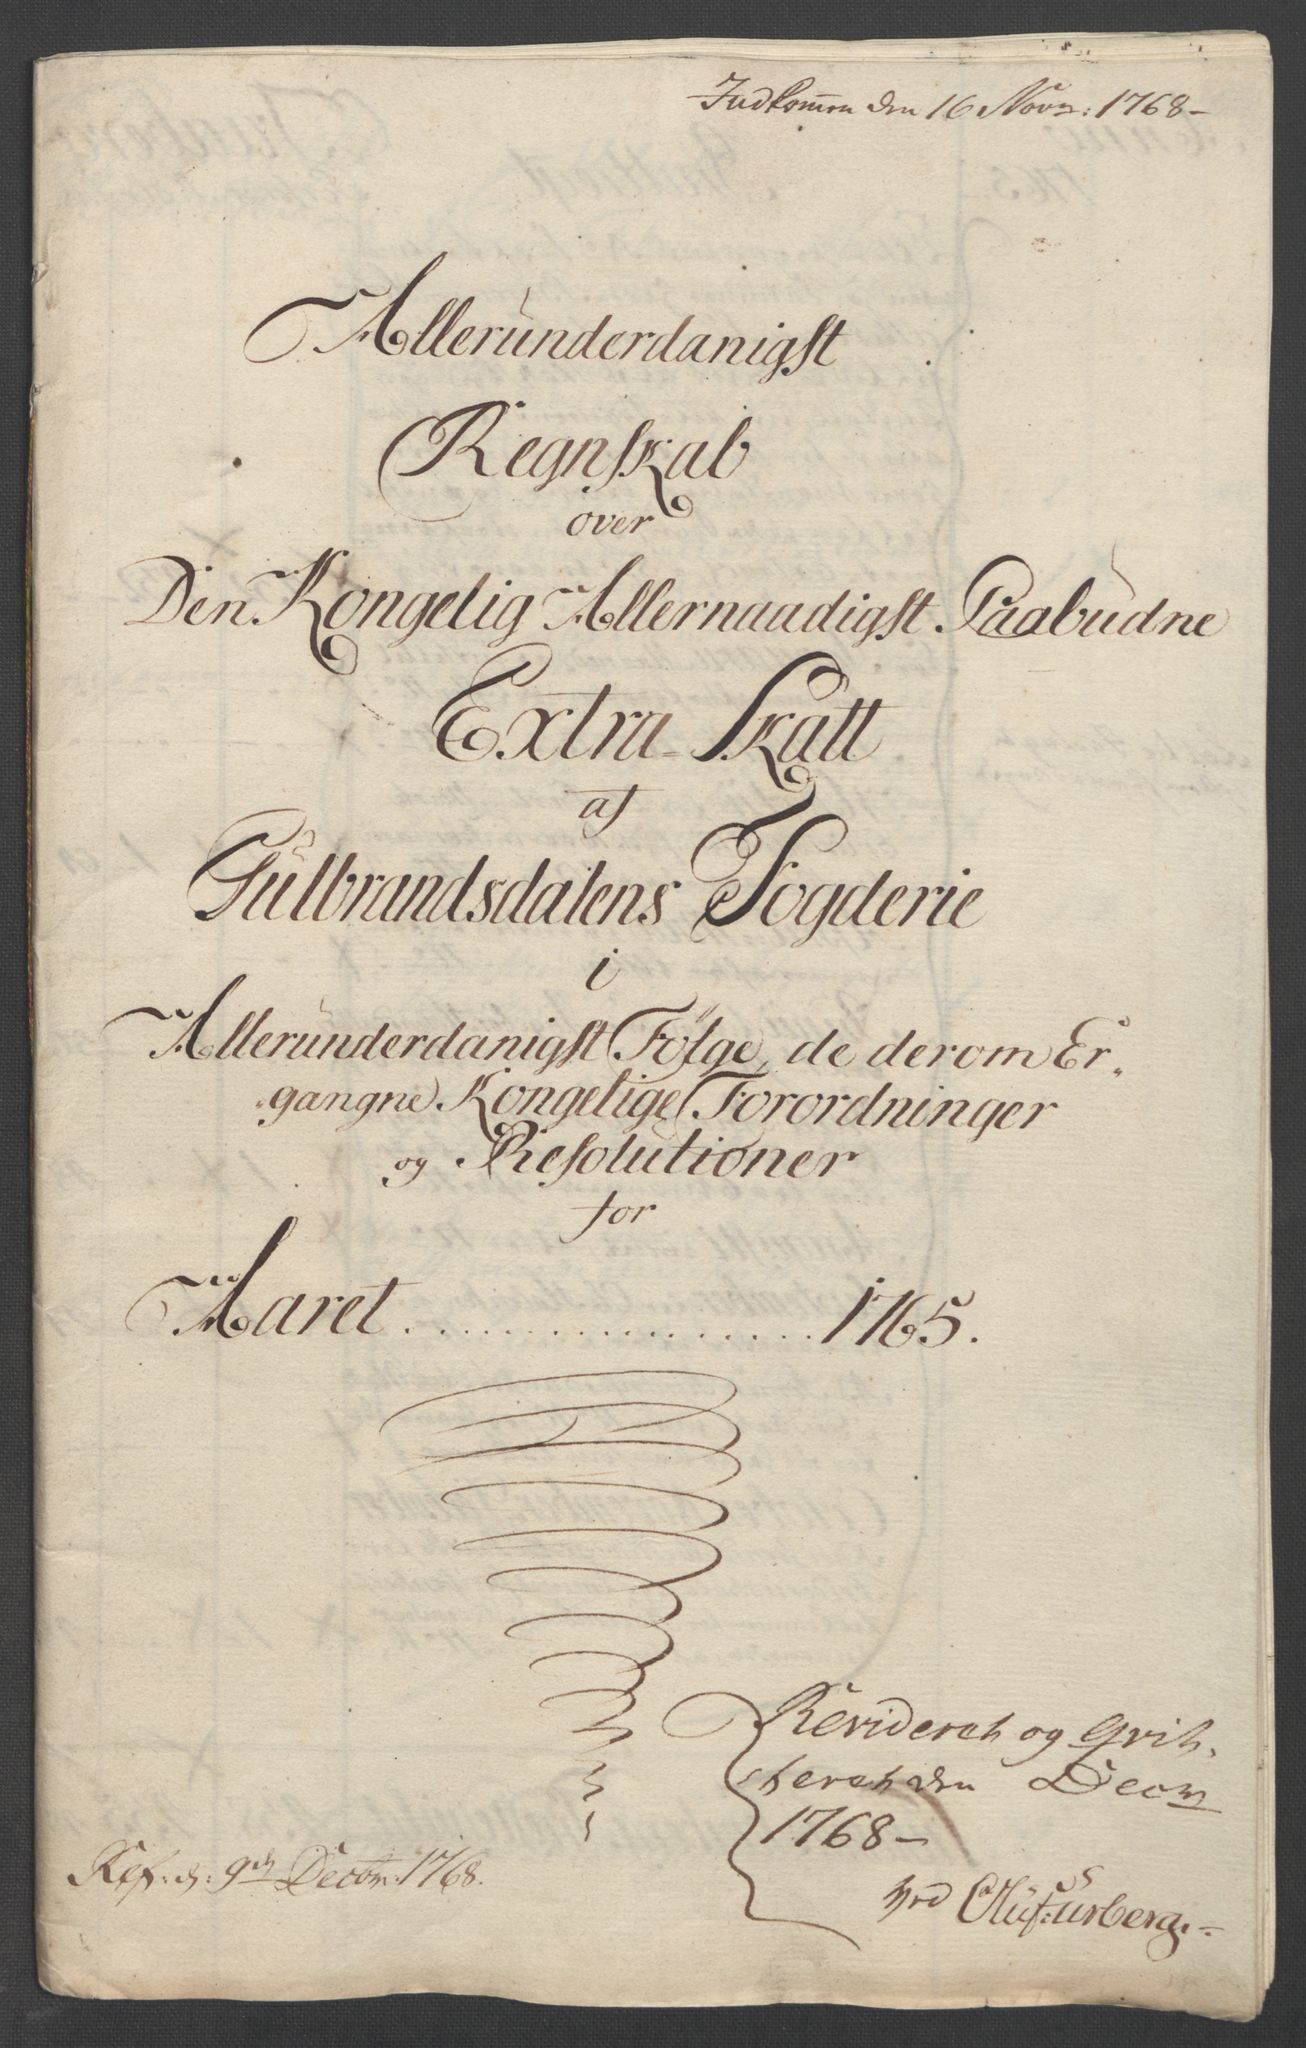 Indkommen den 16 Novr: 1768-
Alleründerdanigst
Regnskab
over
Den Kongelig Allernaadigst Paabüdne
Extra-Skatt
af
Gülbrandsdalens Fogderie
i
Alleründerdanigst Følge, de derom Er-
gangne Kongelige Forordninger
og Resolütioner
for
Aaret ................ 1765.
Revideret og Qvit-
teret den Decbr
1768-
Ref: d: 9de Decbr: 1768.